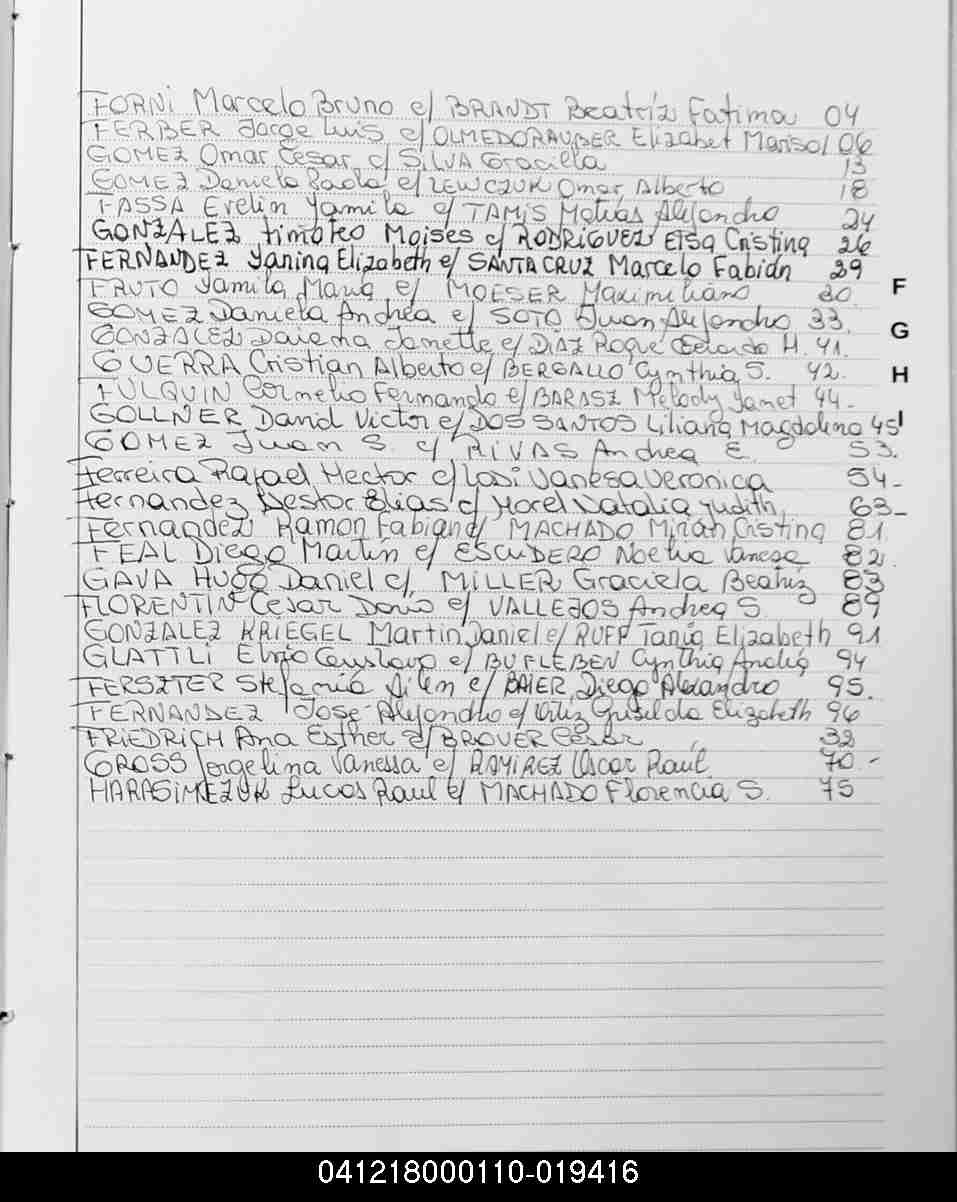 FORNI Marcelo Bruno c/ BRANDT Beatríz Fatima 04
FERBER Jorge Luis c/ OLMEDORAUBER Elizabet Marisol 06
GOMEZ Omar Cesar c/ SILVA Graciela 13
GOMEZ Daniela Paola c/ LEWCZUK Omar Alberto 18
FASSA Evelin Yamila c/ TAMIS Matías Alejandro 24
GONZALEZ Timoteo Moises c/ RODRIGUEZ Elsa Cristina 26
FERNANDEZ Yanina Elizabeth c/ SANTA CRUZ Marcelo Fabián 29
FRUTO Yamila Maria c/ MOESER Maximiliano 30
F
GOMEZ Daniela Andrea c/ SOTO Juan Alejandro 33.
G
GONZALEZ Daiana Janette c/ DIAZ Roque Eduardo H. 41.
GUERRA Cristian Alberto c/ BERGALLO Cynthia S. 42.
H
FULQUIN Cornelio Fernando c/ BARASZ Melody Janet 44-
GOLLNER David Victor c/ DOS SANTOS Liliana Magdalena 45
I
GOMEZ Juan S. c/ RIVAS Andrea E. 53.
Ferreira Rafael Hector c/ Vanesa Veronica 54-
Fernandez Nestor Elias c/ Morel Natalia Judith 63-
Fernandez Ramon Fabian c/ MACHADO Mirian Cristina 81
FEAL Diego Martin c/ ESCUDERO Noelia Vanesa 82
GAVA Hugo Daniel c/ MILLER Graciela Beatriz 83
FLORENTIN Cesar Dario c/ VALLEJOS Andrea S. 89
GONZALEZ KRIEGEL Martin Daniel c/ RUFF Tania Elizabeth 91
GLATTLI Elvio Gustavo c/ BUFLEBEN Cynthia Analia 94
FERSZTER Stefania Ailen c/ BAIER Diego Alexandro 95.
FERNANDEZ José Alejandro c/ Ortiz Griselda Elizabeth 96
FRIEDRICH Ana Esther c/ BROVER César 32
GROSS Jorgelina Vanessa c/ RAMIREZ Oscar Raúl 70.-
HARASIMEZUK Lucas Raul c/ MACHADO Florencia S. 75
041218000110-019416